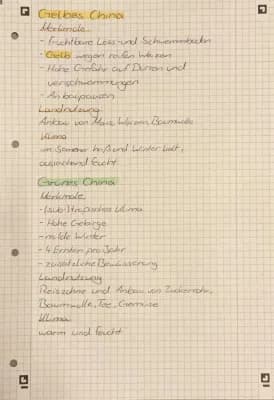 Gelbes China
Merkmale
- Fruchtbare Löss- und Schwemmböden
- Gelb wegen reifen Weizen
- Hohe Gefahr auf Dürren und
verschwämmungen
- Anbaupausen
Landnutzung
Anbau von Mais, Weizen, Baumwolle
Klima
im Sommer heiß und Winter kalt,
ausreichend feucht
Grünes China
Merkmale
- (sub-)tropisches Klima
- Hohe Gebirge
- milde Winter
- 4 Ernten pro Jahr
- zusätzliche Bewässerung
Landnutzung
Reiszone und Anbau von Zuckerrohr,
Baumwolle, Tee, Gemüse
Klima
warm und feucht